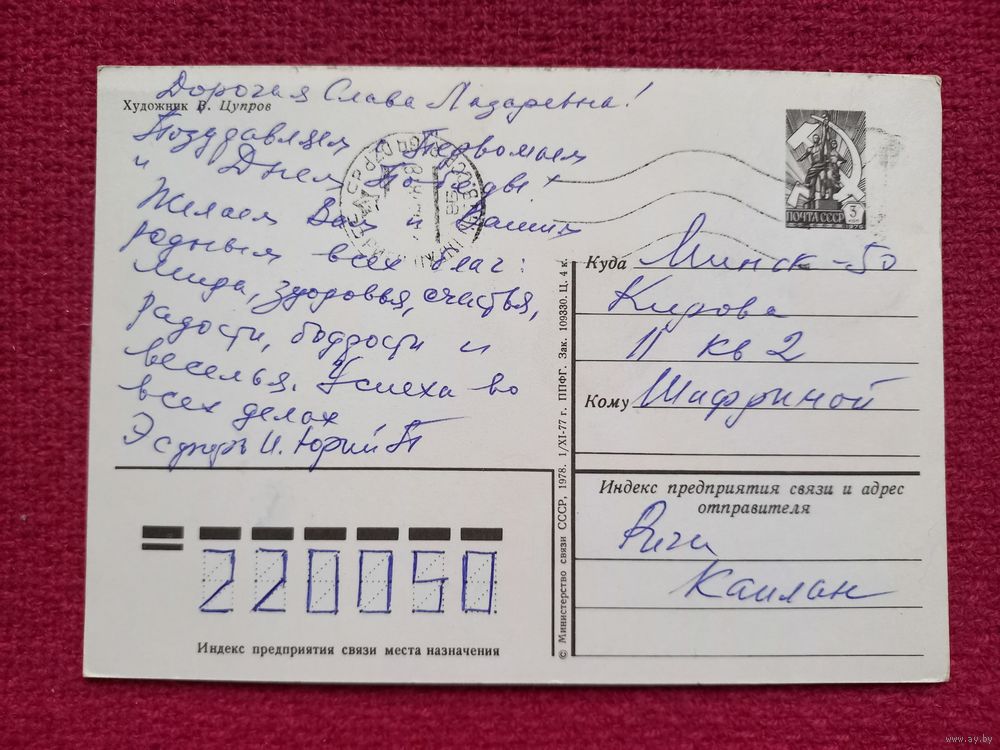 Дорогая Слава Лазаревна!
Художник В. Цупров
Поздравляем с Первомаем
и Днем Победы!
Желаем Вам и Вашим
родным всех благ:
мира, здоровья, счастья,
радости, бодрости и
веселья. Успеха во
всех делах
Эсфирь и Юрий
ПОЧТА СССР
5
1976
Куда Минск-50
Кирова
11 кв 2
Кому Шифриной
Индекс предприятия связи и адрес
отправителя
Каплан
© Министерство связи СССР, 1978. 1/XI-77 г. ППФГ. Зак. 109330. Ц. 4 к.
220050
Индекс предприятия связи места назначения
www.ay.by